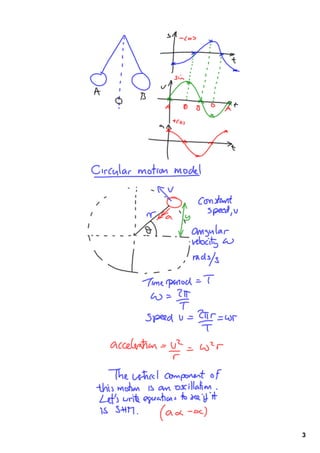 s
-cos
t
sin
A
O
B
v
A O B O A
t
+cos
t
Circular motion model
v
Constant
speed, v
r
a
y
θ
angular
velocity ω
rads/s
Time period = T
ω = 2π/T
Speed v = 2πr/T = ωr
acceleration = v²/r = ω²r
The vertical component of
this motion is an oscillation.
Let's write equations to see if it
is SHM. (a α -x)
3